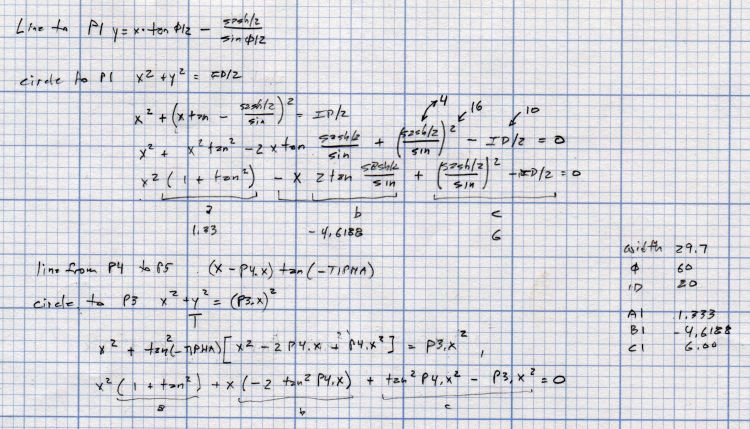 Line to P1 y = x · tan Φ/2 − sash/2 / sin Φ/2
circle to P1 x² + y² = ID/2
x² + (x tan − sash/2 / sin)² = ID/2
4 16 10
x² + x² tan² − 2 x tan sash/2 / sin + (sash/2 / sin)² − ID/2 = 0
x² (1 + tan²) − x 2 tan sash/2 / sin + (sash/2 / sin)² − ID/2 = 0
a b c
1.33 −4.6188 6
line from P4 to P5 (x − P4.x) tan (−TIPHA)
circle to P3 x² + y² = (P3.x)²
T
x² + tan²(−TIPHA) [x² − 2 P4.x + P4.x²] = P3.x²,
x² (1 + tan²) + x (−2 tan² P4.x) + tan² P4.x² − P3.x² = 0
a b c
29.7
Φ 60
ID 20
A1 1.333
B1 −4.6188
C1 6.00